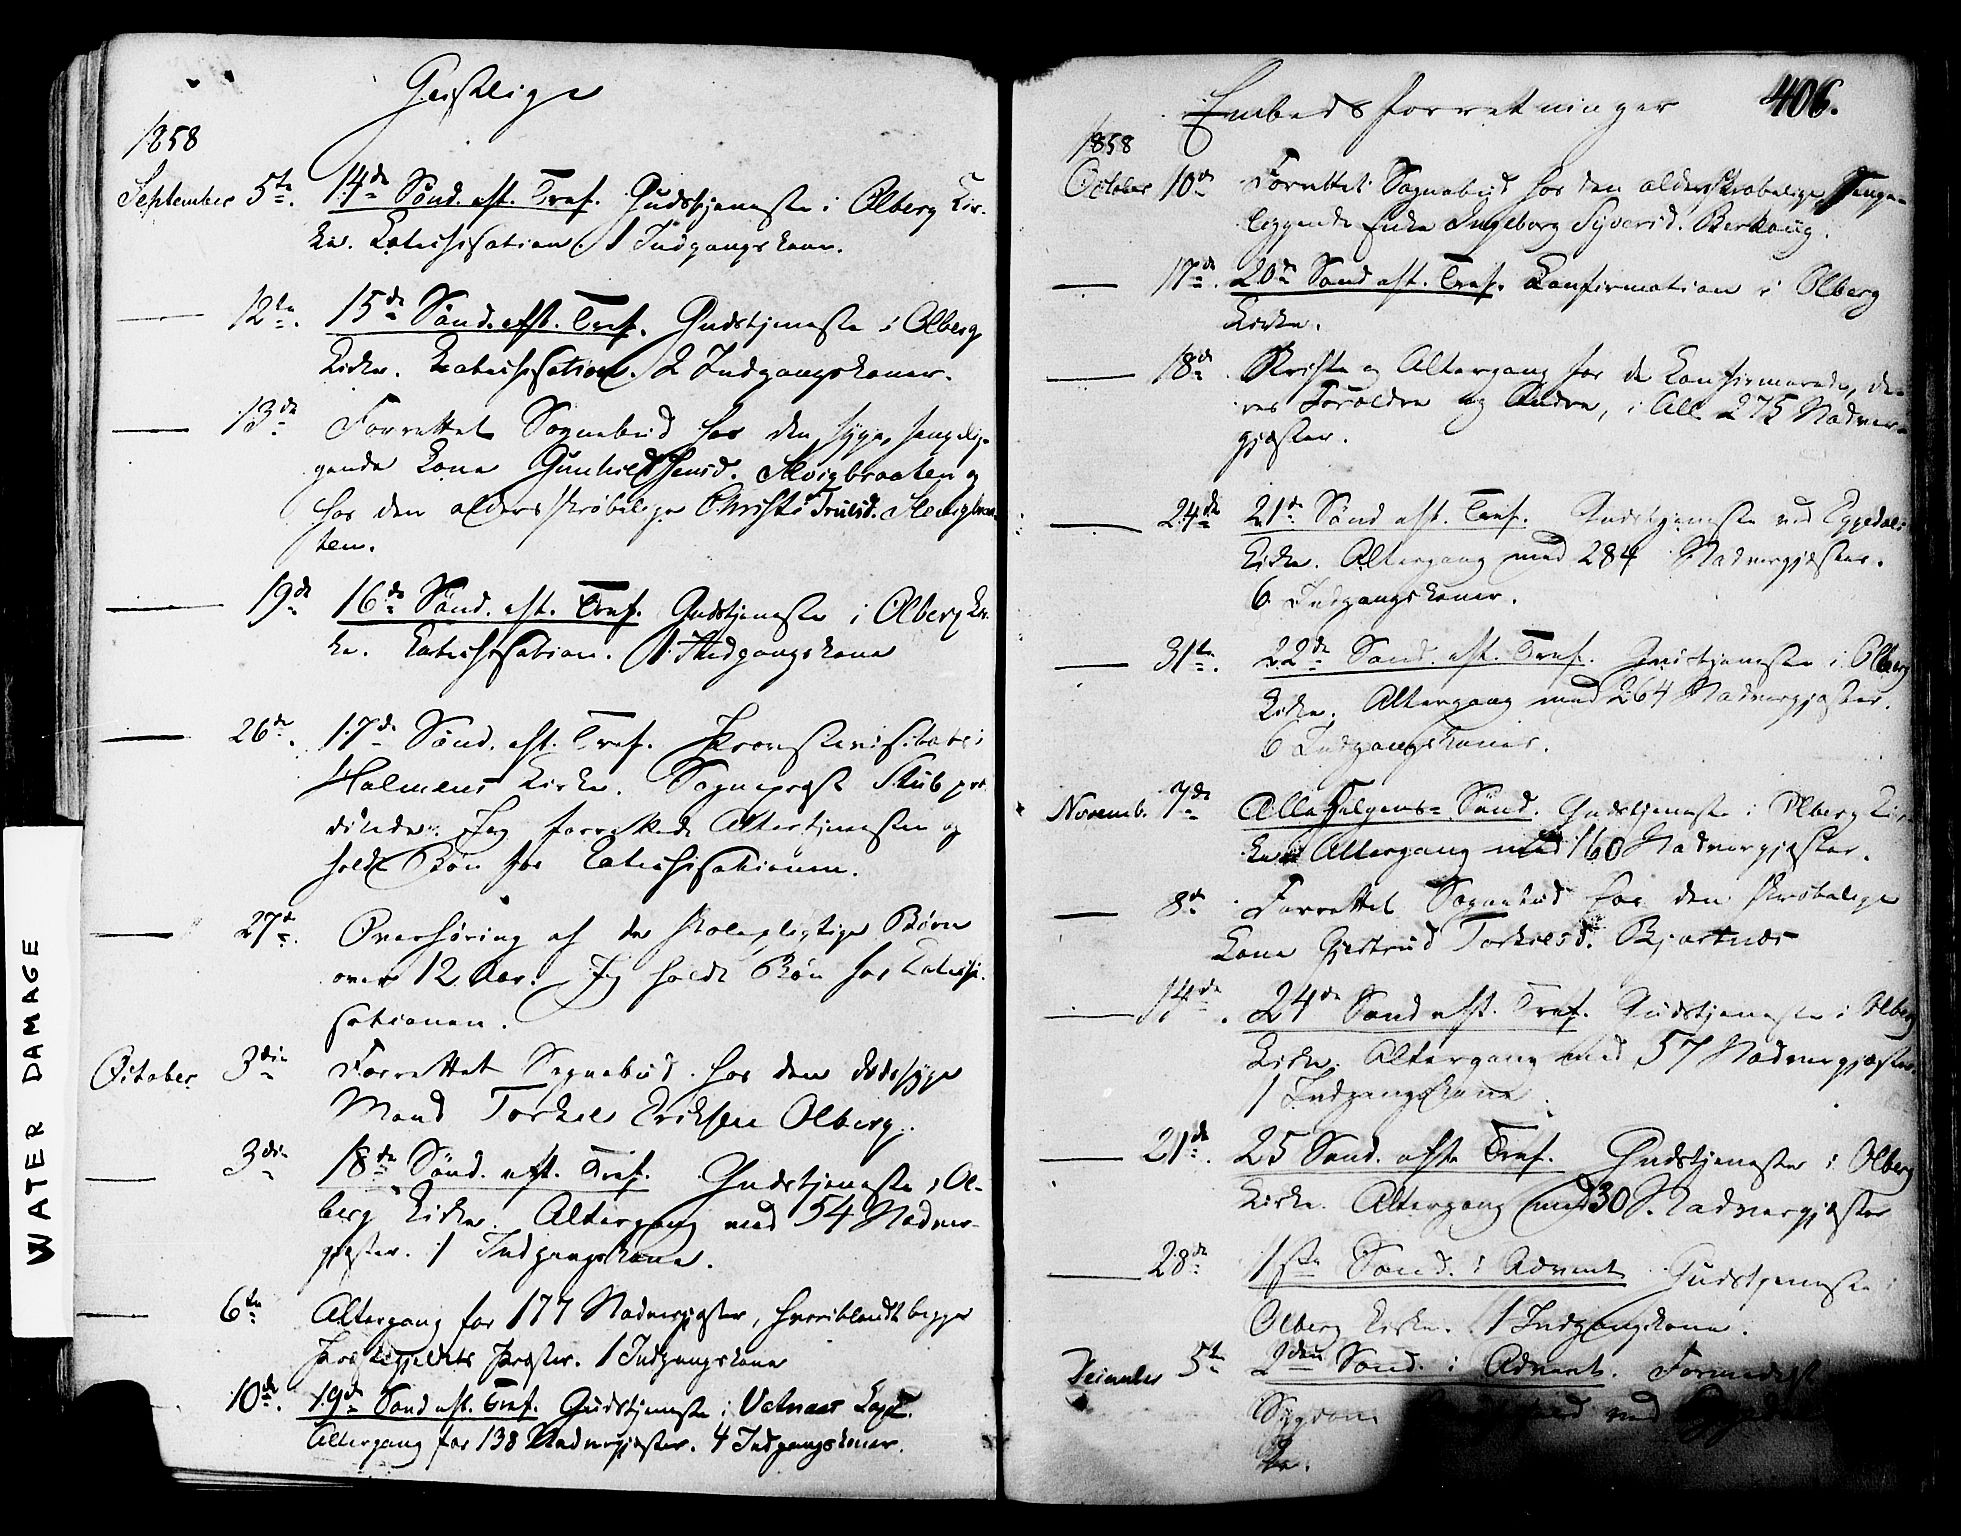 Geistlige
1858
September 5te. 14de Sønd. eft. Tref. Gudstjeneste i Olberg Kir-
ke. Catechisation. 1 Indgangskone.
— 12te. 15de Sønd. eft. Tref. Gudstjeneste i Olberg
Kirke. Catechisation. 2 Indgangskoner.
— 13de Forrettet Sognebud hos den syge, sengelig-
gende Kone Gunhild Jensd. Moigbraaten og
hos den aldersskrøbelige Christi Trulsd. Moigbraa-
ten.
— 19de 16de Sønd. eft. Tref. Gudstjeneste i Olberg Kir-
ke. Catechisation. 1 Indgangskone
— 26de. 17de Sønd. eft. Tref. Provstevisitats i
Holmens Kirke. Sognepræst Stub præ-
dikede. Jeg forrettede Altertjenesten og
holdt Bøn før Catechisationen.
— 27de. Overhøring af de skolepligtige Børn
over 12 Aar. Jeg holdt Bøn før Catechi-
sationen.
October 3die Forrettet Sognebud hos den dødssyge
Mand Torkel Eriksen Olberg.
— 3die 18de Sønd. eft. Tref. Gudstjeneste i Ol-
berg Kirke. Altergang med 54 Nadver-
gjæster. 1 Indgangskone.
— 6te Altergang for 177 Nadvergjæster, hveriblandt begge
Præstegjeldets Præster. 1 Indgangskone
— 10de. 19de Sønd eft. Tref. Gudstjeneste i Vatnaas Capel.
Altergang for 138 Nadvergjæster. 4 Indgangskoner.
WATER DAMAGE
Embedsforretninger 406.
1858
October 10de Forrettet Sognebud hos den aldersskrøbelige, senge-
liggende Enke Ingeborg Syversd. Berhaug.
— 17de. 20de Sønd eft. Tref. Confirmation i Olberg
Kirke.
— 18de Skrifte og Altergang for de Confirmerede, de-
res Forældre og Andre, i Alt 275 Nadver-
gjæster.
— 24de 21de Sønd eft. Tref. Gudstjeneste ved Eggedals
Kirke. Altergang med 284 Nadvergjæster.
6 Indgangskoner.
— 31te. 22de Sønd. eft. Tref. Gudstjeneste i Olberg
Kirke. Altergang med 264 Nadvergjæster.
6 Indgangskoner.
Novemb. 7de Alle Helgens-Sønd. Gudstjeneste i Olberg Kir-
ke. Altergang med 160 Nadvergjæster.
— 8de Forrettet Sognebud hos den skrøbelige
Kone Gjertrud Torkelsd. Bjertnæs
— 14de. 24de Sønd eft. Tref. Gudstjeneste i Olberg
Kirke. Altergang med 57 Nadvergjæster.
1 Indgangskone.
— 21de. 25 Sønd. efte Tref. Gudstjeneste i Olberg
Kirke. Altergang med 30 Nadvergjæster
— 28de 1ste Sønd. i Advent Gudstjeneste i
Olberg Kirke. 1 Indgangskone.
December 5te 2den Sønd. i Advent. Formedelst
Sygdom ved
ke.